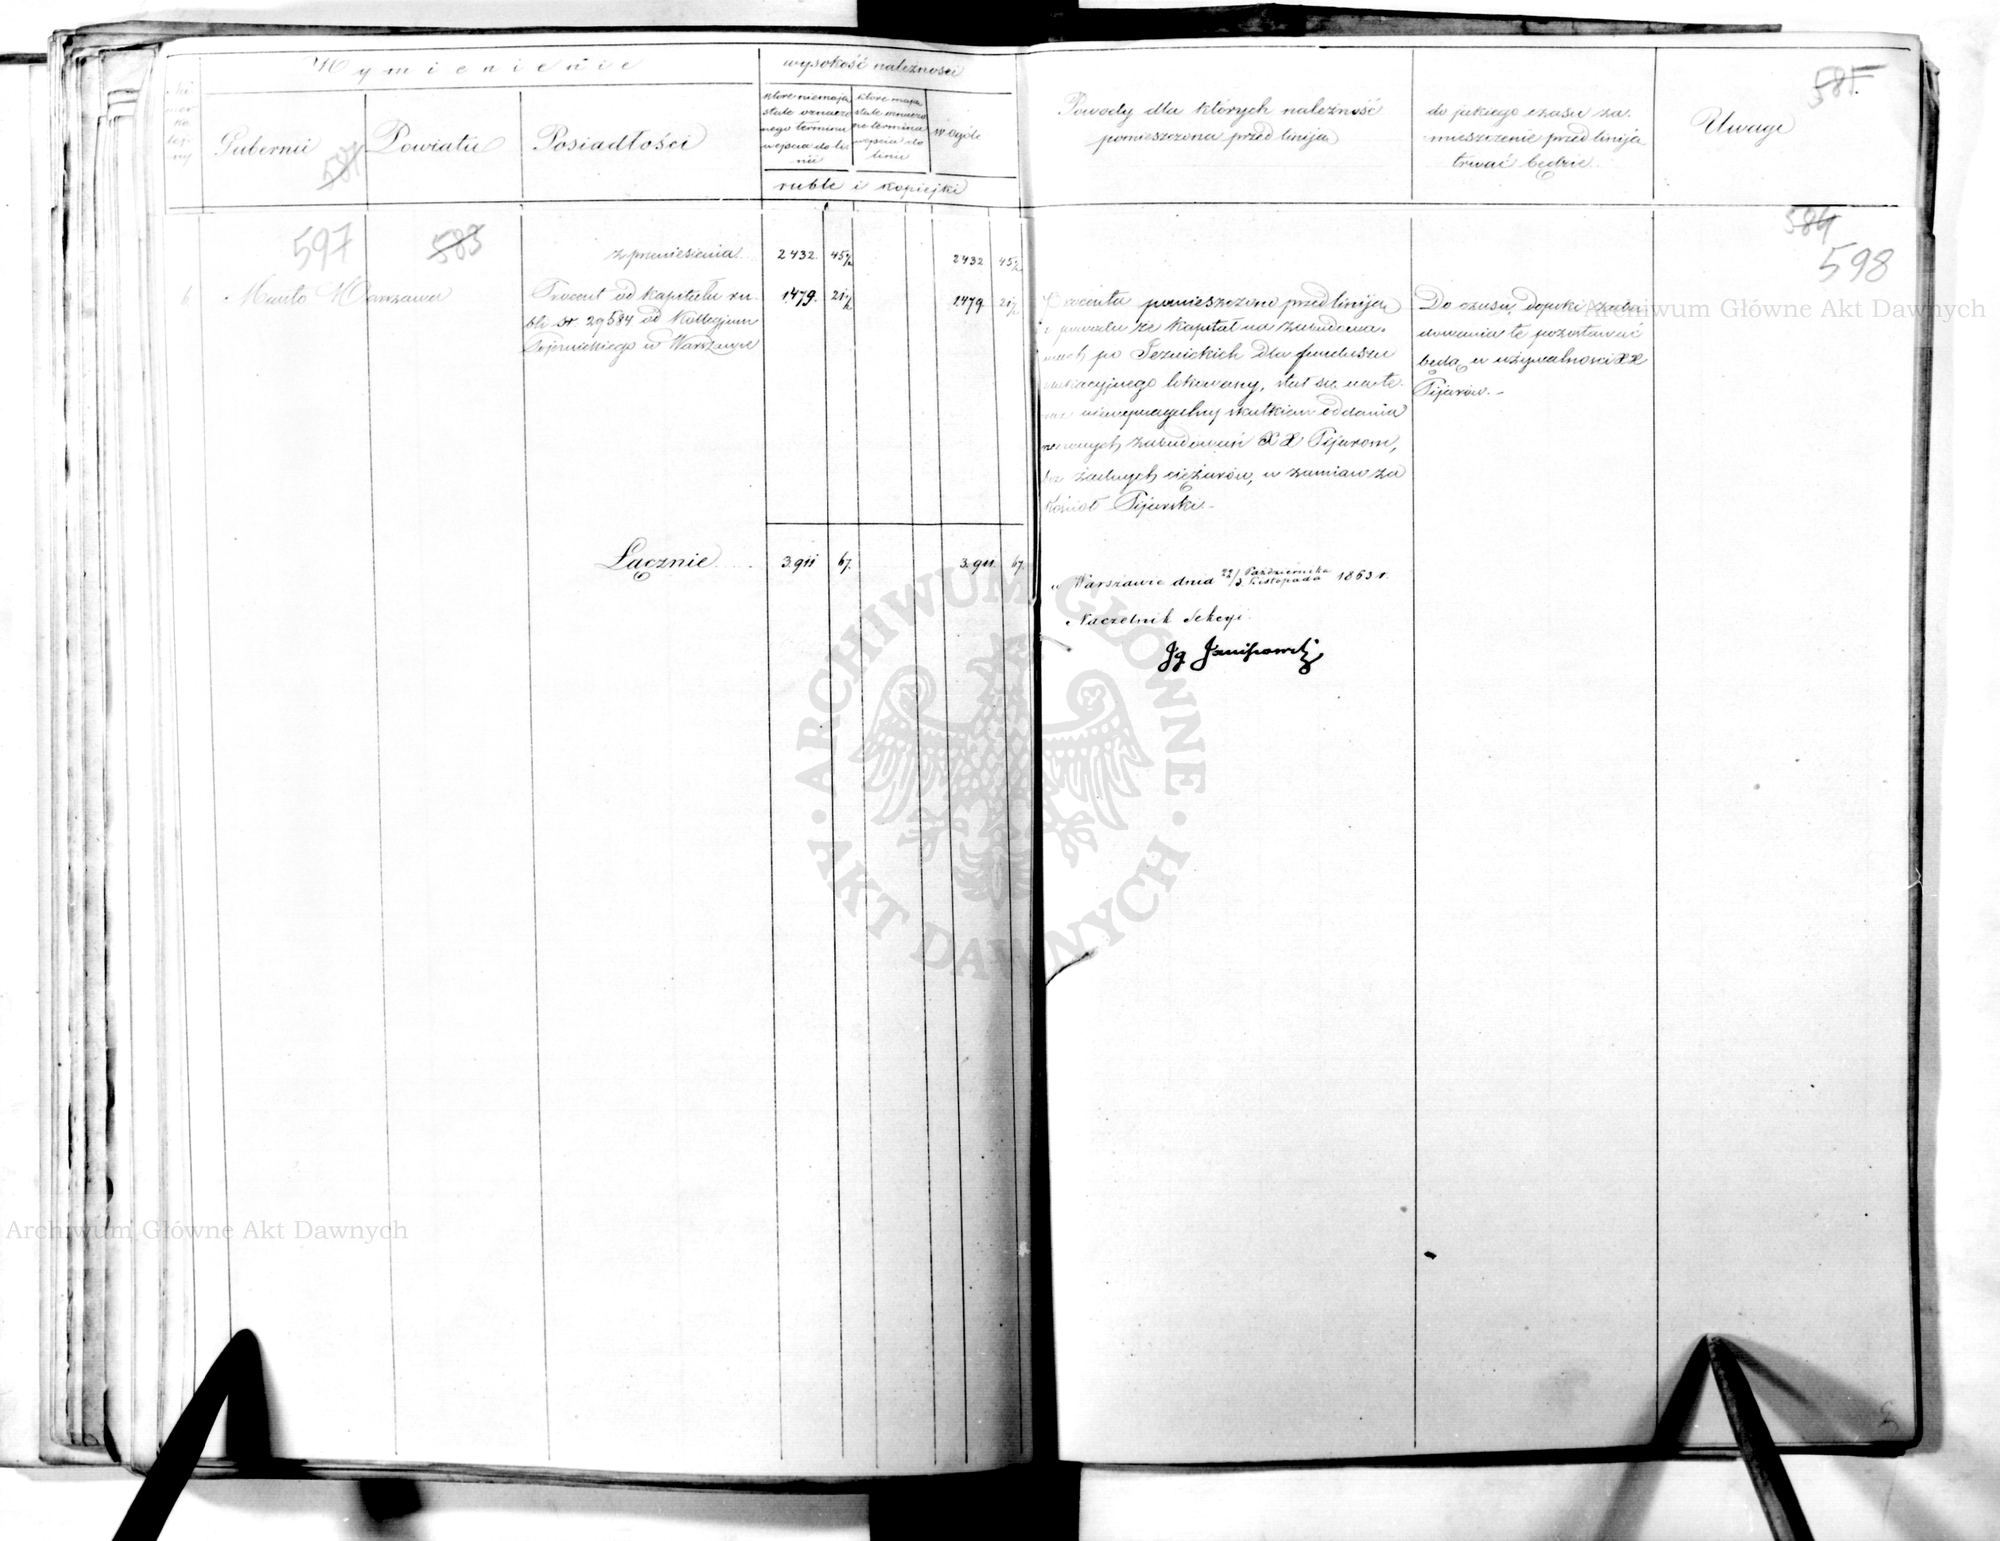 Wymienienie
Gubernii
Powiatu
Posiadłości
wysokość należności
które niemają
stale oznaczo
nego terminu
wejścia do li-
nii
które mają
stale oznaczo
ne termina
wejścia do
linii
w ogóle
ruble i kopiejki
Powody dla których należność
pomieszczona przed liniją
do jakiego czasu za-
mieszczenie przed liniją
trwać będzie
Uwagi
585
587
597
583
584
598
z przeniesienia
2432. 45½
2432 45½
6 Miasto Warszawa
Procent od kapitału ru-
bli sr. 29584 od Kollegium
w Warszawie
1479. 21½
1479. 21½
Procenta pomieszczono przed liniją
z powodu że kapitał na zabudowa-
niach po Jezuickich dla funduszu
edukacyjnego lokowany, stał się na te-
raz skutkiem oddania
zabudowań XX Pijarom,
bez żadnych ciężarów, w zamian za
kościół Pijarski.-
Do czasu, dopóki zabu
dowania te pozostawać
będą w używalności XX
Pijarów.-
Łącznie
3.911 67.
3.911. 67.
w Warszawie dnia 22/3 Października/Listopada 1863 r.
Naczelnik Sekcyi
Jg Janiszowski
ARCHIWUM GŁÓWNE
AKT DAWNYCH
Archiwum Główne Akt Dawnych
Archiwum Główne Akt Dawnych